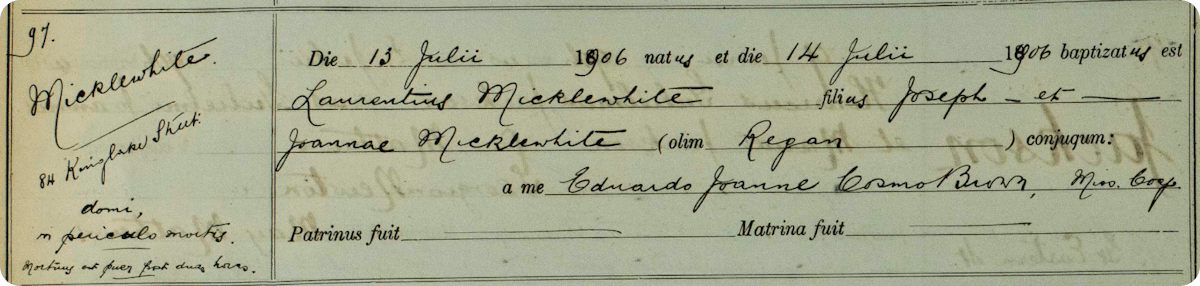 97.
Micklewhite.
84 Kinglake Street.
domi,
in periculo mortis.
Mortuus est puer post duas horas.
Die 13 Julii 1906 natus et die 14 Julii 1906 baptizatus est
Laurentius Micklewhite filius Joseph et
Joannae Micklewhite (olim Regan) conjugum:
a me Eduardo Joanne Cosmo Brown, Miss. Coop.
Patrinus fuit Matrina fuit